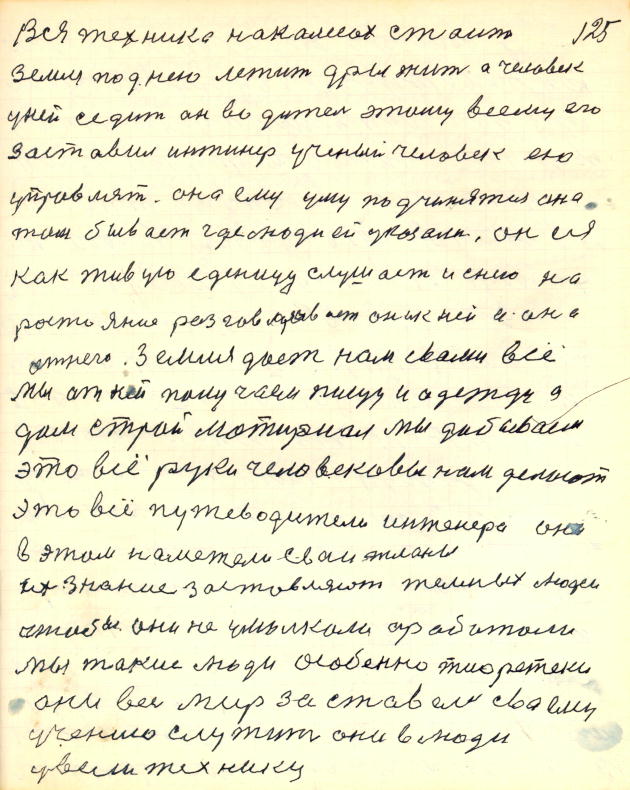 Вся техника накалесах стаит 125
Земля поднею летит дрыжит а человек
уней седит он водител этому всему его
заставил интинер ученый человек ею
управлят. она ему уму подчинятия она
там бывает где людие й указали, он ея
как живую еденицу слушает и снею на
ростояние разговаривает онкней а она
отнего. Земля дает нам свами всё
мы от ней получаем пищу и одежду а
дом строй мотириал мы добываем
это всё руки человековы нам делают
это всё путеводители интенера они
в этом наметели сваи планы
их знание заставляют темных люди
чтобы они не умылкали аработали
мы такие люди особенно тиоретеки
они весь мир заставели сваему
учению служить они влюди
увели технику